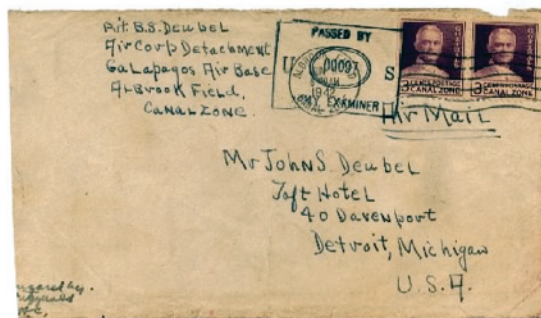 Pvt. B.S. Deubel
Air Corp Detachment
Galapagos Air Base
Albrook Field,
Canal Zone.
PASSED BY
00097
S
1942
ARMY EXAMINER
3 CENTS POSTAGE
CANAL ZONE
3 CENTS POSTAGE
CANAL ZONE
Air Mail
Mr John S. Deubel
Taft Hotel
40 Davenport
Detroit, Michigan
U.S.A.